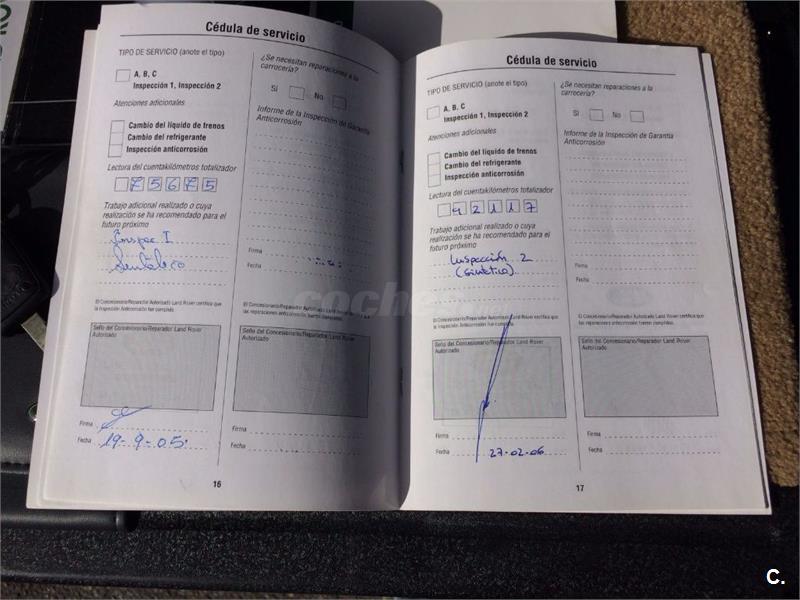 Cédula de servicio
TIPO DE SERVICIO (anote el tipo)
A, B, C
Inspección 1, Inspección 2
Atenciones adicionales
Cambio del líquido de frenos
Cambio del refrigerante
Inspección anticorrosión
Lectura del cuentakilómetros totalizador
75675
Trabajo adicional realizado o cuya
realización se ha recomendado para el
futuro próximo
Inspec I
El Concesionario/Reparador Autorizado Land Rover certifica que
la Inspección Anticorrosión ha cumplido.
Sello del Concesionario/Reparador Land Rover
Autorizado
Firma
Fecha 19-9-05
¿Se necesitan reparaciones a la
carrocería?
Sí No
Informe de la Inspección de Garantía
Anticorrosión
Firma
Fecha
las reparaciones anticorrosión fueron cumplidas.
Sello del Concesionario/Reparador Land Rover
Autorizado
Firma
Fecha
16
Cédula de servicio
TIPO DE SERVICIO (anote el tipo)
A, B, C
Inspección 1, Inspección 2
Atenciones adicionales
Cambio del líquido de frenos
Cambio del refrigerante
Inspección anticorrosión
Lectura del cuentakilómetros totalizador
42117
Trabajo adicional realizado o cuya
realización se ha recomendado para el
futuro próximo
Inspección 2
(Sintético)
El Concesionario/Reparador Autorizado Land Rover certifica que
la Inspección Anticorrosión ha cumplido.
Sello del Concesionario/Reparador Land Rover
Autorizado
Firma
Fecha 27-02-06
¿Se necesitan reparaciones a la
carrocería?
Sí No
Informe de la Inspección de Garantía
Anticorrosión
Firma
Fecha
las reparaciones anticorrosión fueron cumplidas.
Sello del Concesionario/Reparador Land Rover
Autorizado
Firma
Fecha
17
coche
C.